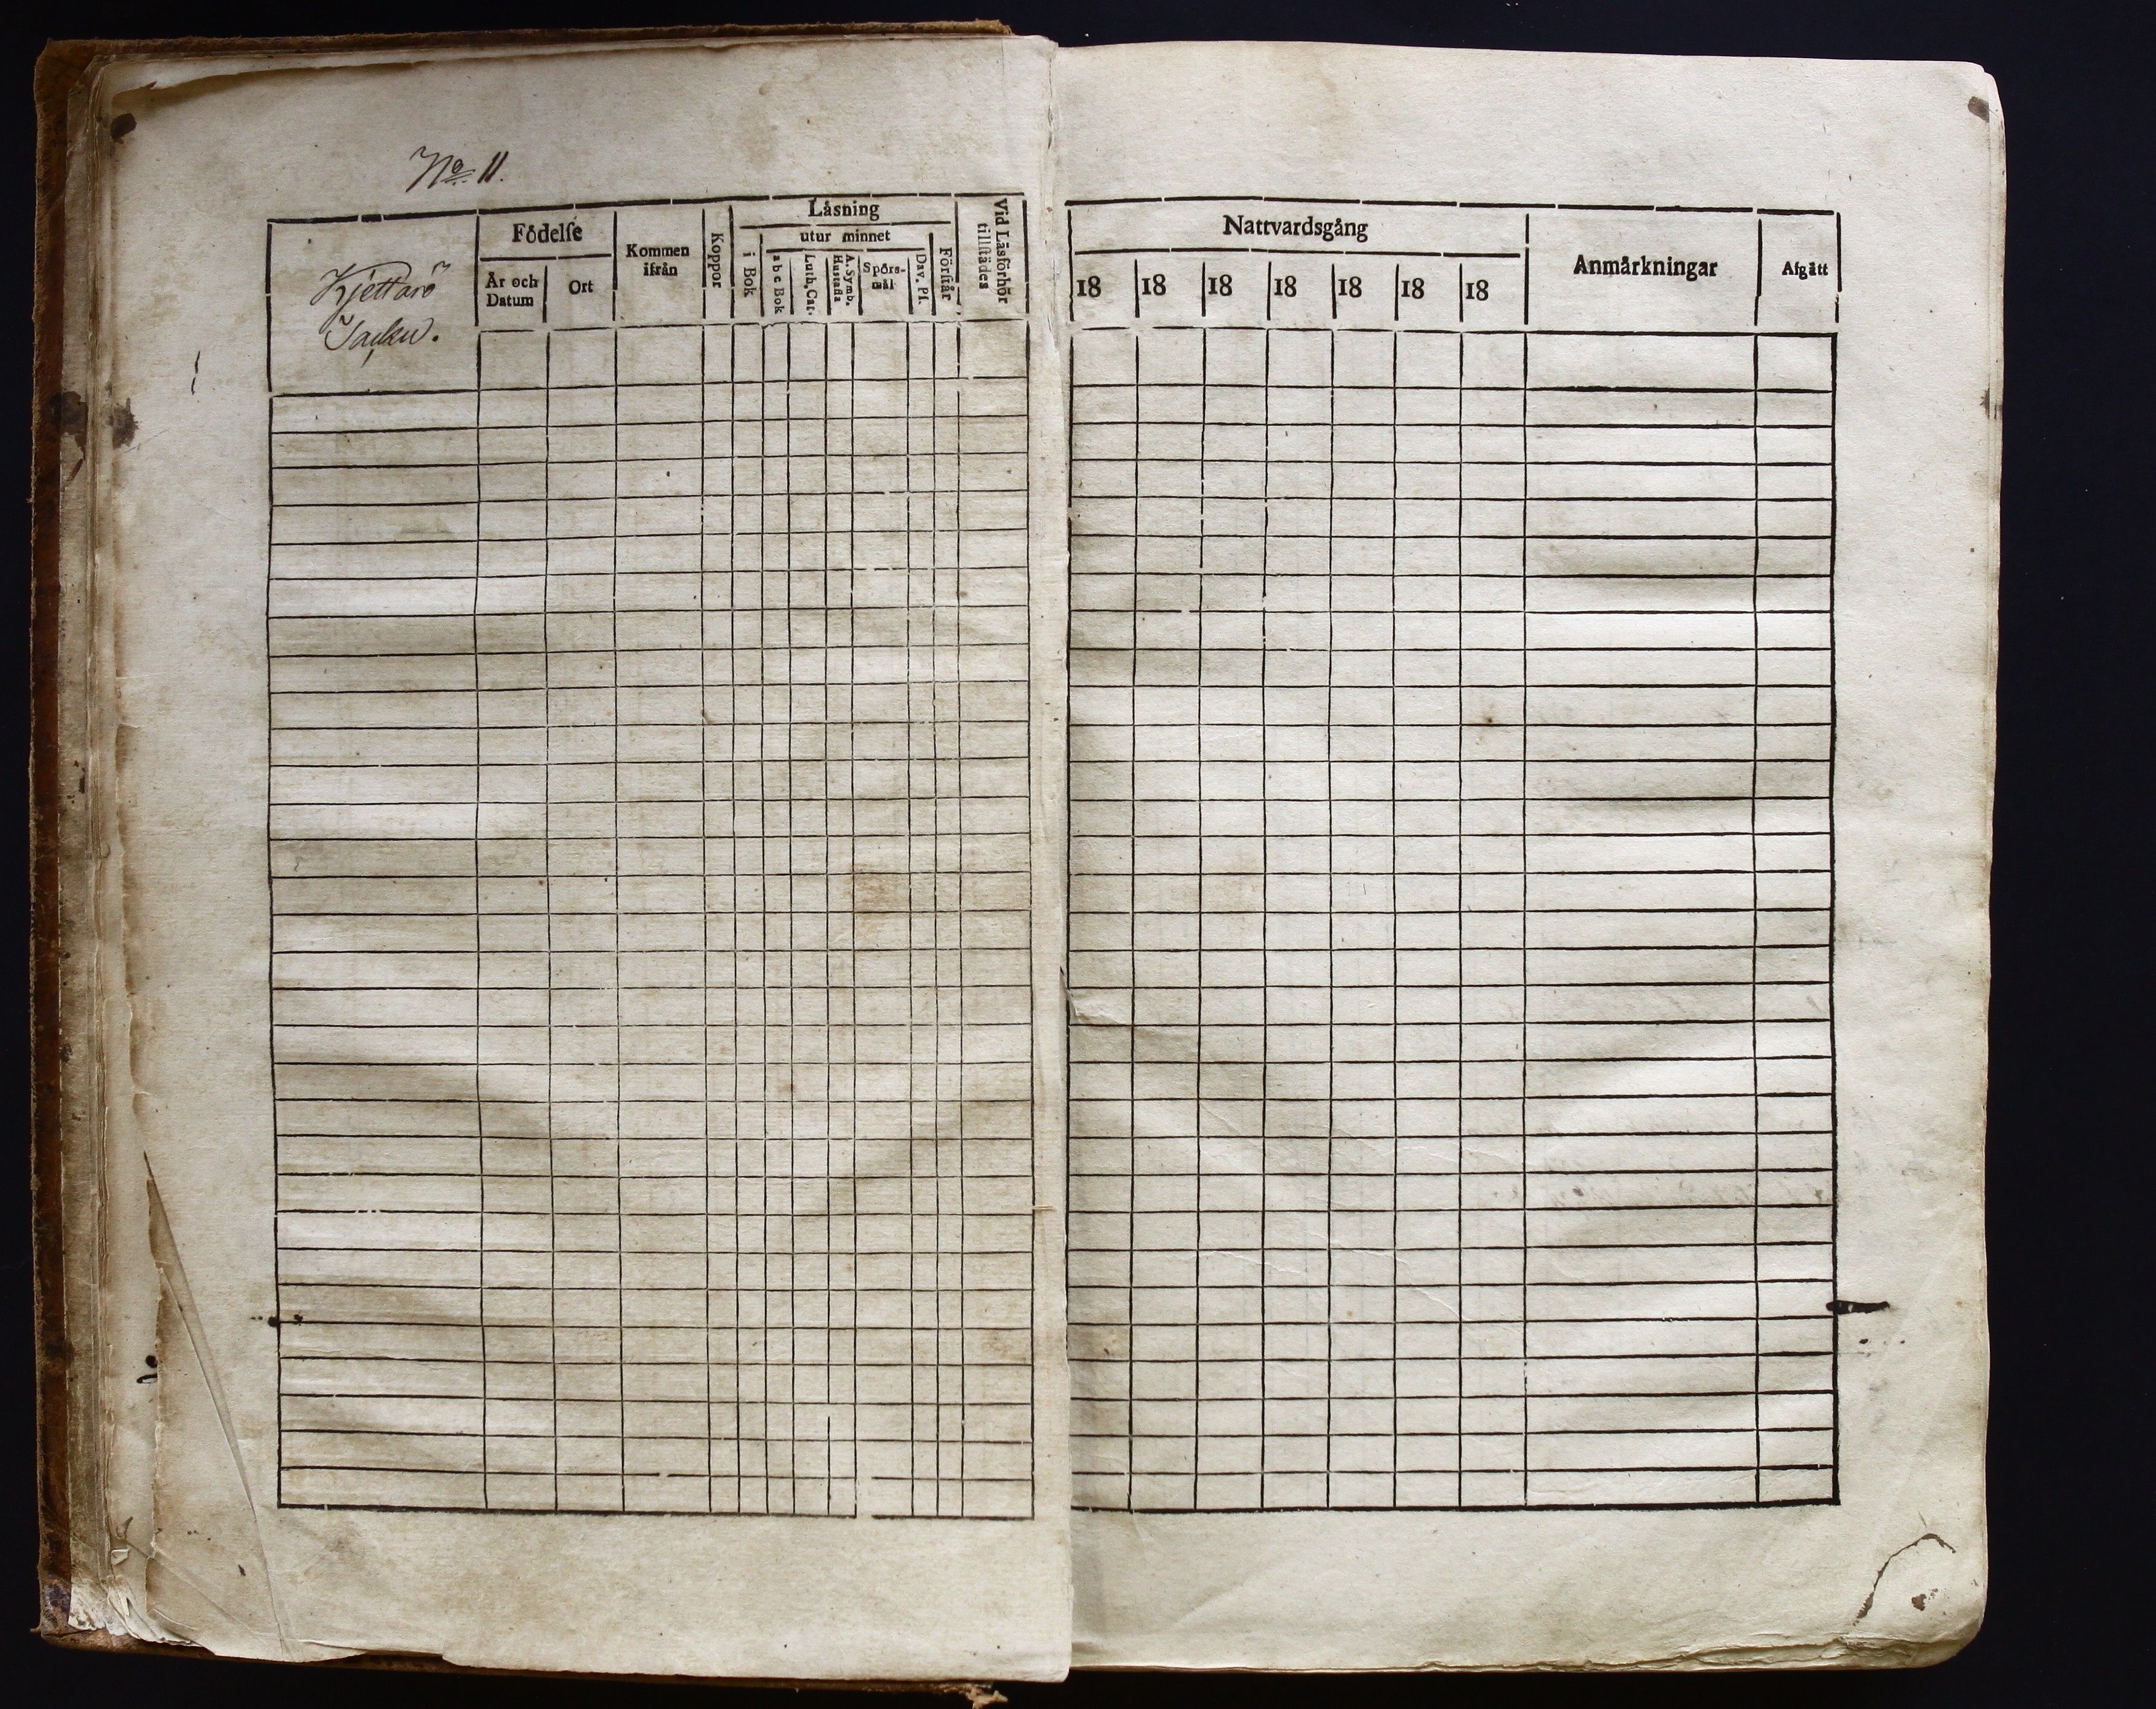 No 11.
Kjettarö
Jacku.
Födelſe
År och
Datum
Ort
Kommen
ifrån
Koppor
Låsning
i Bok
utur minnet
a b c Bok
Luth. Cat.
A. Symb.
Hustafla
Spörs-
mål
Dav. Pſ.
Förſtår
Vid Läsförhör
tillſtädes
Nattvardsgång
18 18 18 18 18 18 18
Anmårkningar
Afgått